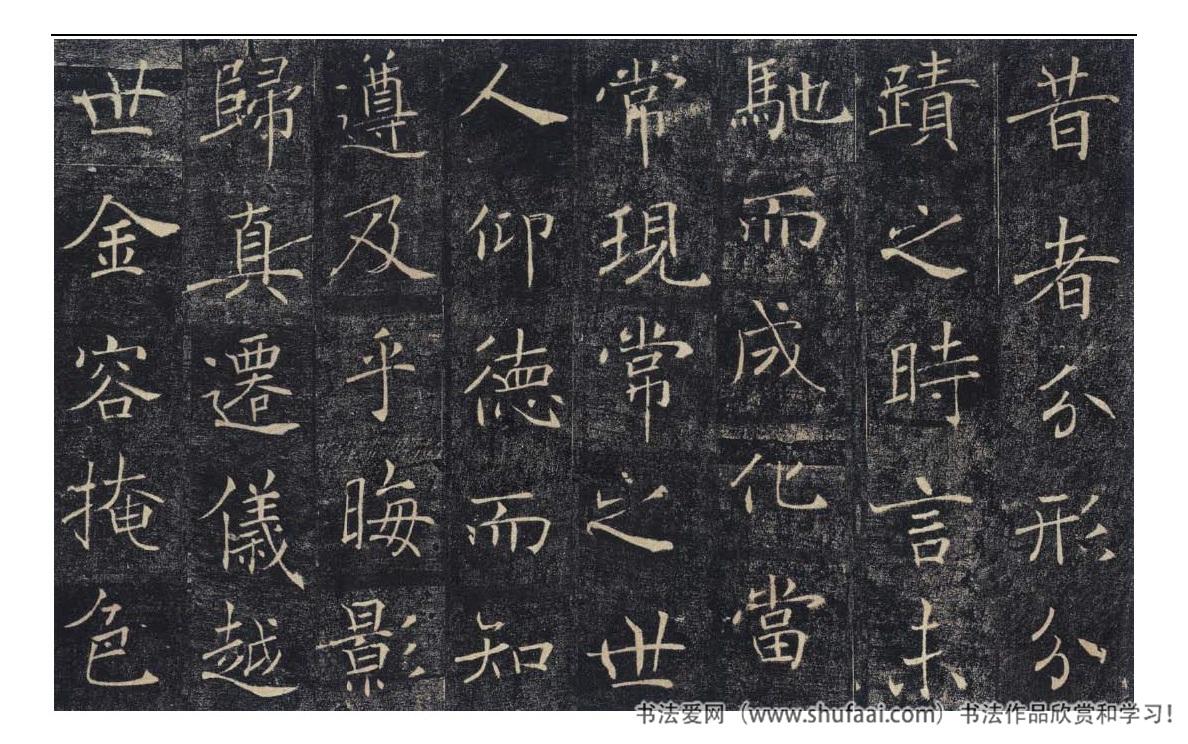 昔者分形分
蹟之時言未
馳而成化當
常現常之世
人仰德而知
遵及乎晦影
歸真遷儀越
世金容掩色
书法爱网（www.shufaai.com）书法作品欣赏和学习！